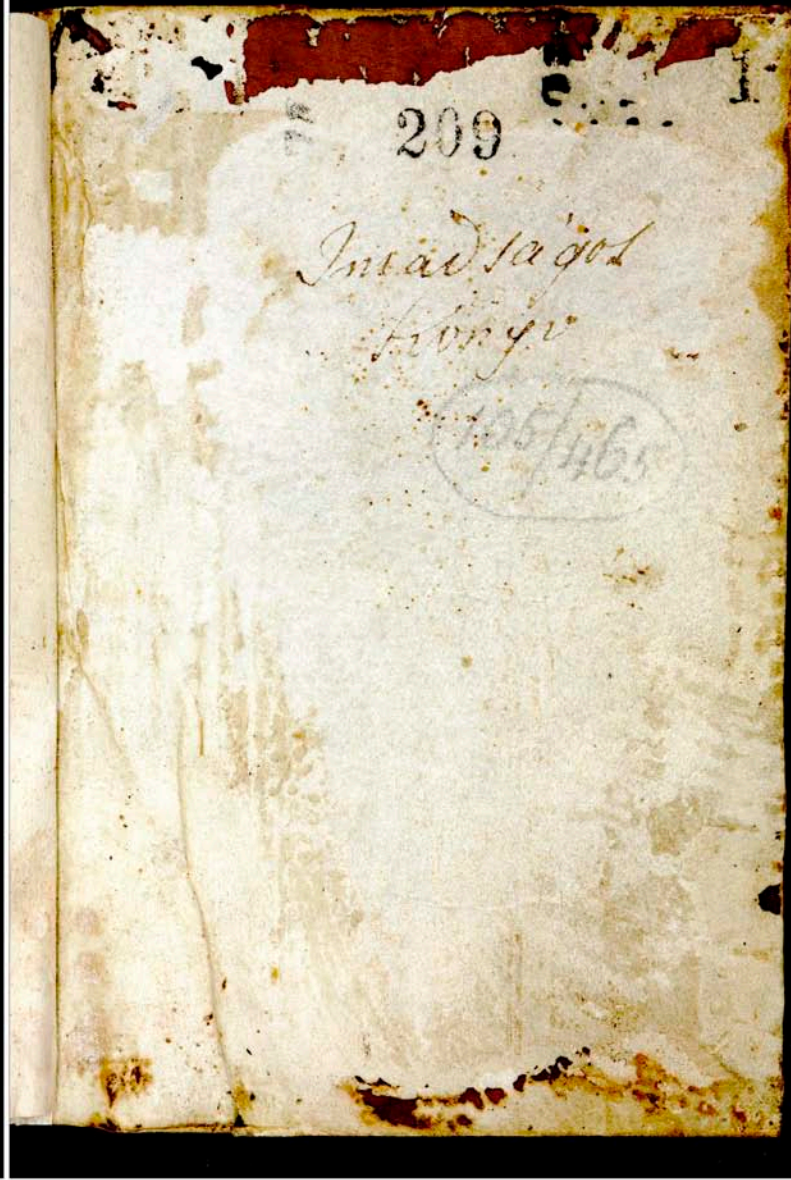 209
Imadságos
Könyv
105/465